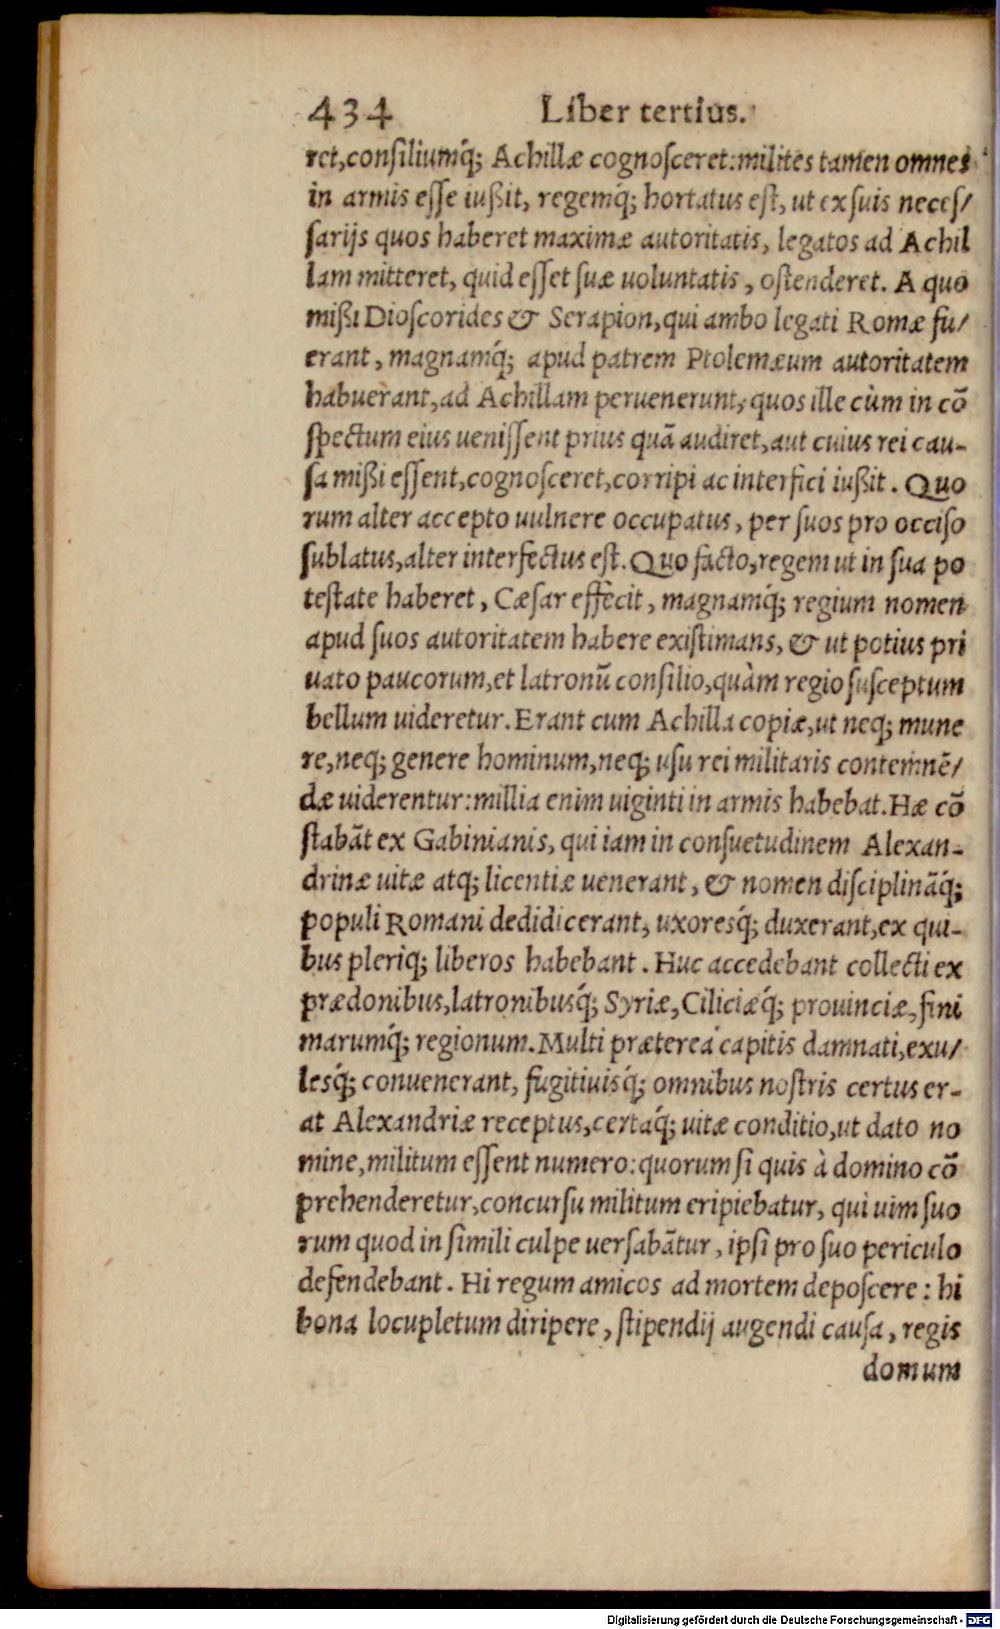 434 Liber tertius.
ret,consiliumq́; Achillæ cognosceret:milites tamen omnes
in armis esse iußit, regemq́; hortatus est, ut ex suis neces/
sarijs quos haberet maximæ autoritatis, legatos ad Achil
lam mitteret, quid esset suæ uoluntatis, ostenderet. A quo
mißi Dioscorides & Serapion, qui ambo legati Romæ fu/
erant, magnamq́; apud patrem Ptolemæum autoritatem
habuerant,ad Achillam peruenerunt, quos ille cùm in cō
spectum eius uenissent prius quā audiret, aut cuius rei cau-
sa mißi essent,cognosceret,corripi ac interfici iußit. Quo
rum alter accepto uulnere occupatus, per suos pro occiso
sublatus,alter interfectus est. Quo facto,regem ut in sua po
testate haberet, Cæsar effecit, magnamq́; regium nomen
apud suos autoritatem habere existimans, & ut potius pri
uato paucorum,et latronū consilio,quàm regio susceptum
bellum uideretur. Erant cum Achilla copiæ,ut neq; mune
re,neq; genere hominum,neq; usu rei militaris contemnē/
dæ uiderentur:millia enim uiginti in armis habebat. Hæ cō
stabāt ex Gabinianis, qui iam in consuetudinem Alexan-
drinæ uitæ atq; licentiæ uenerant, & nomen disciplināq́;
populi Romani dedidicerant, uxoresq́; duxerant,ex qui-
bus pleriq; liberos habebant. Huc accedebant collecti ex
prædonibus,latronibusq́; Syriæ,Ciliciæq́; prouinciæ,fini
marumq́; regionum. Multi præterea capitis damnati,exu/
lesq́; conuenerant, fugitiuisq́; omnibus nostris certus er-
at Alexandriæ receptus,certaq́; uitæ conditio,ut dato no
mine,militum essent numero:quorum si quis à domino cō
prehenderetur,concursu militum eripiebatur, qui uim suo
rum quod in simili culpe uersabātur, ipsi pro suo periculo
defendebant. Hi regum amicos ad mortem deposcere: hi
bona locupletum diripere, stipendij augendi causa, regis
domum
Digitalisierung gefördert durch die Deutsche Forschungsgemeinschaft - DFG